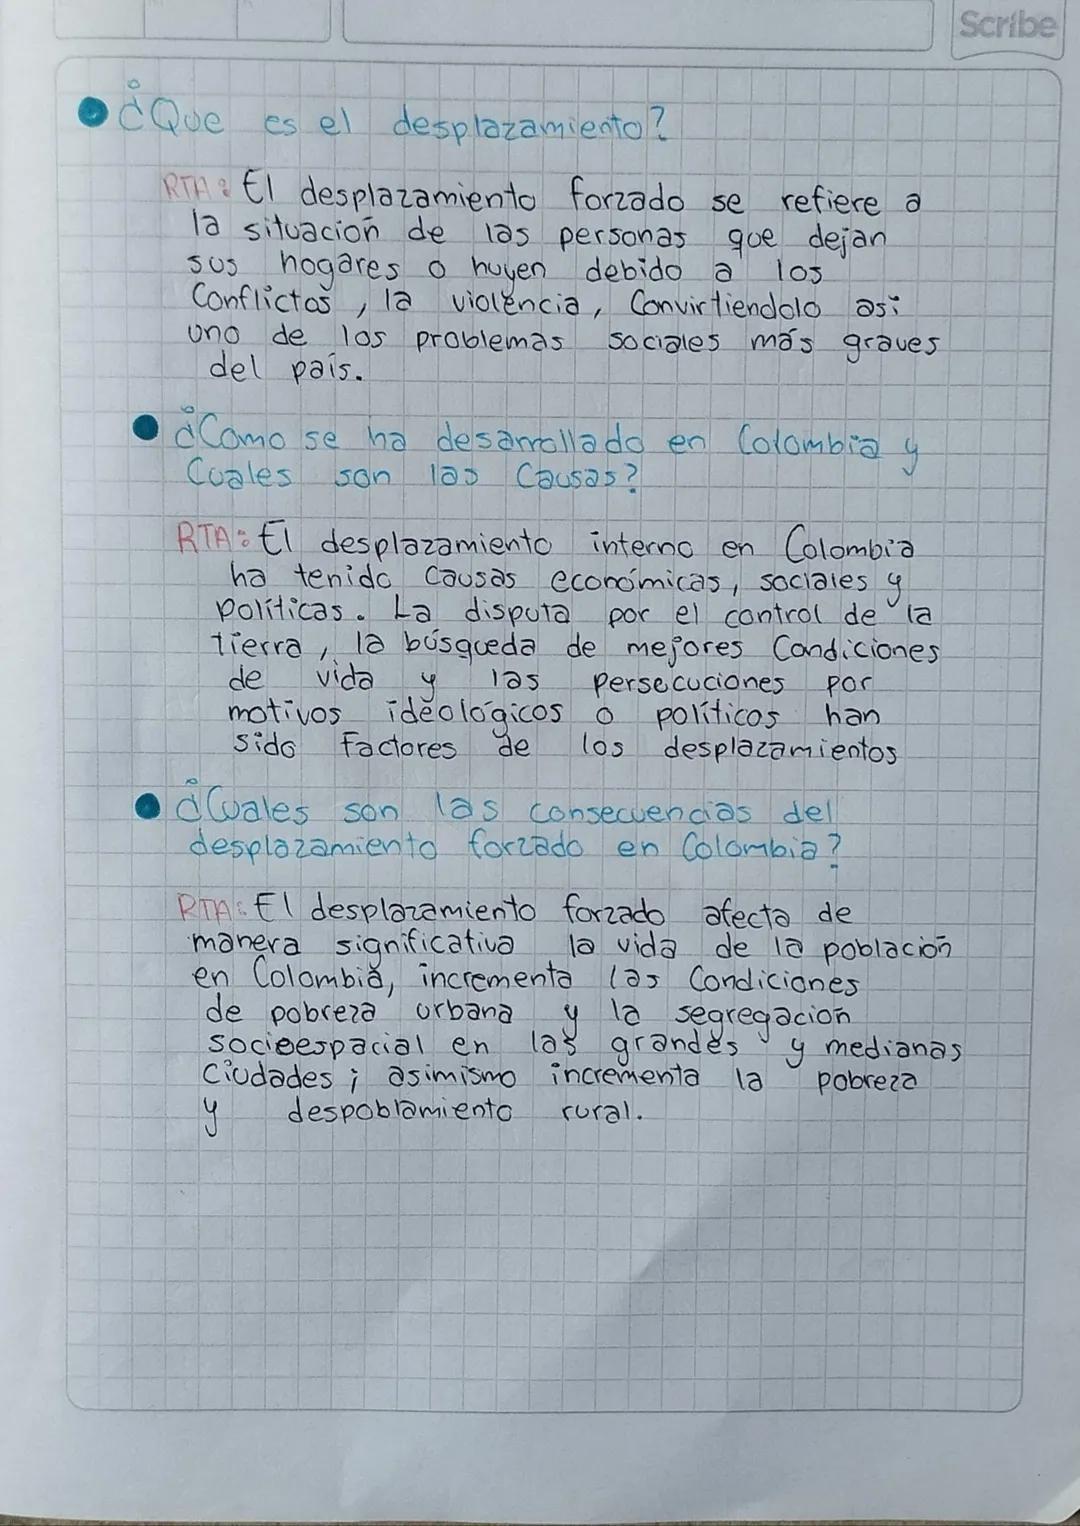 Scribe
¿Que es el desplazamiento?
RTA: El desplazamiento forzado se refiere a
la situación de las personas que dejan
sus hogares o huyen debido a los
Conflictos, la violencia, Convirtiendolo asi
uno de los problemas sociales más graves
del país.
¿Como se ha desarrollado en Colombia y
Cuales son las Causas?
RTA: El desplazamiento interno en Colombia
ha tenido Causas económicas, sociales y
políticas. La disputa por el control de la
tierra, la búsqueda de mejores Condiciones
de vida y las persecuciones por
motivos ideológicos o políticos han
sido Factores de los desplazamientos
¿Cuales son las consecuencias del
desplazamiento forzado en Colombia?
RTA: El desplazamiento forzado afecta de
manera significativa la vida de la población
en Colombia, incrementa las Condiciones
de pobreza urbana y la segregación
socioespacial en las grandes y medianas
Ciudades; asimismo incrementa la pobreza
y despoblamiento rural.